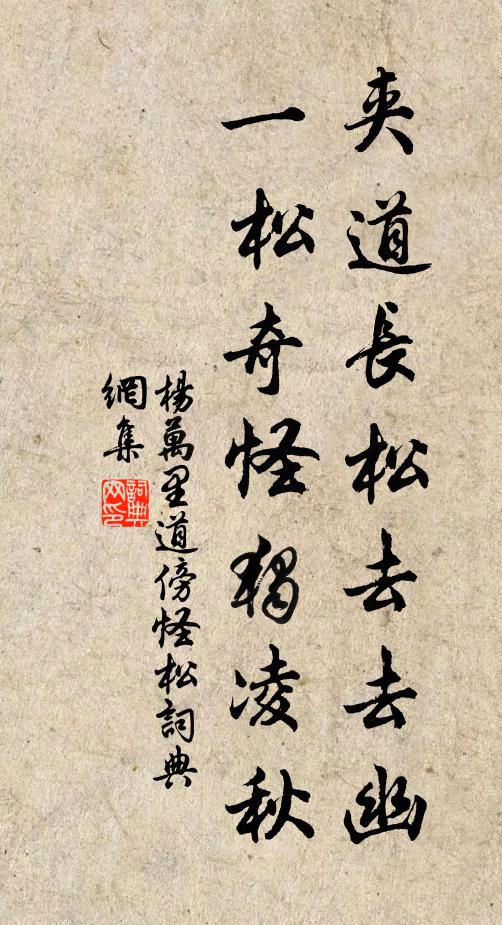 夾道長松去去幽
一松奇怪獨凌秋
楊萬里道傍怪松詞典
網集
詞典
网印